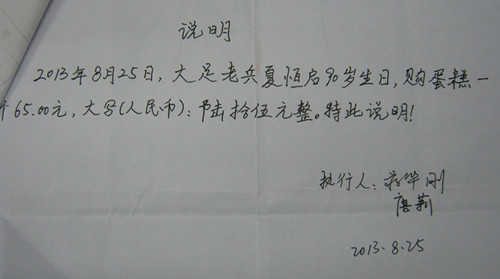 说明
2013年8月25日，大足老兵夏恒启90岁生日，购蛋糕一
个65.00元，大写(人民币)：陆拾伍元整。特此说明!
执行人：蒋华刚
唐莉
2013.8.25